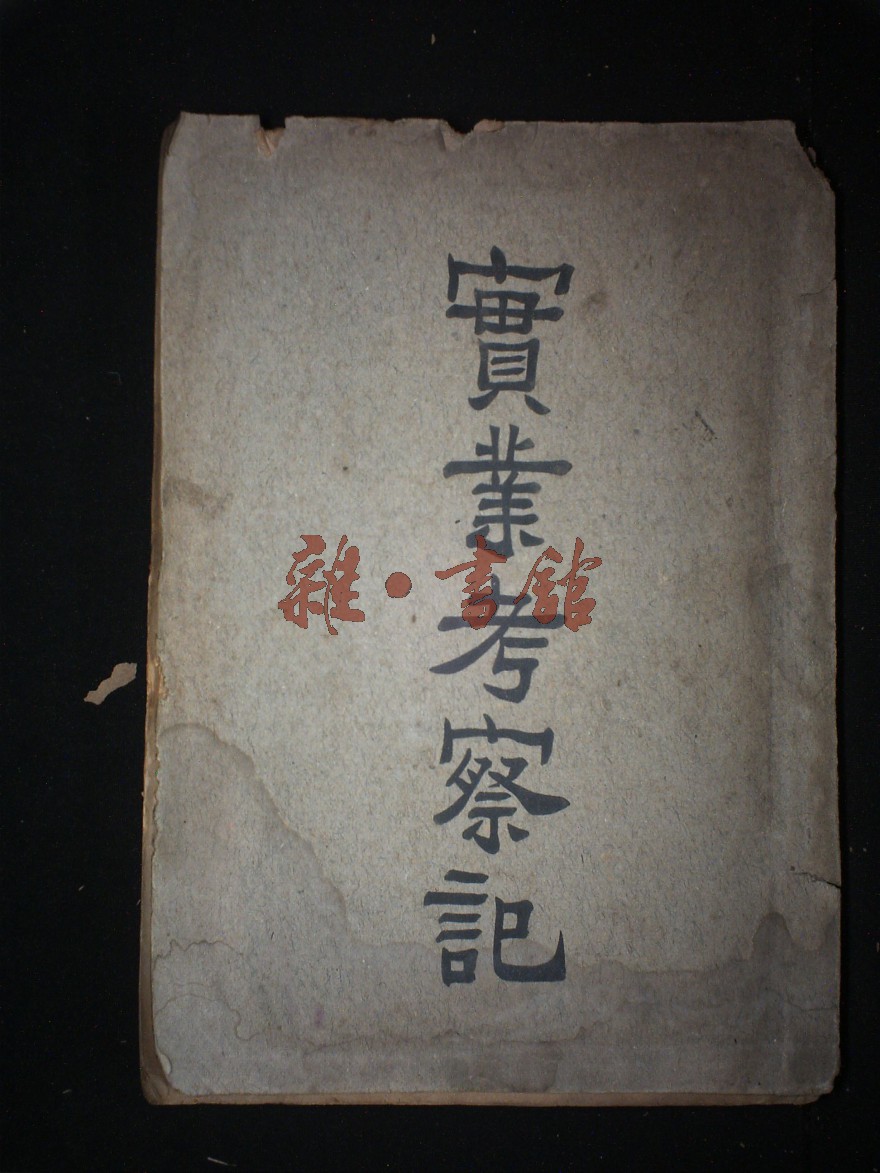 實業考察記
雜·書館